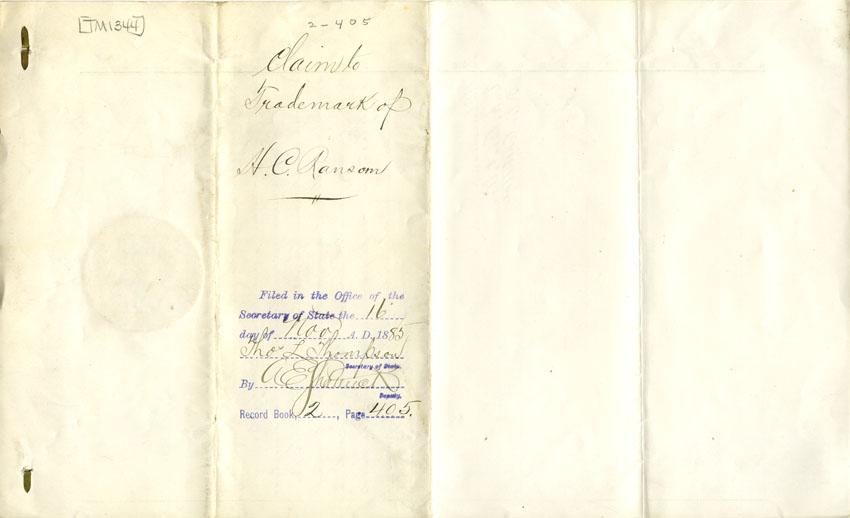 TM1344
2-405
Claim to
Trademark of
H. C. Ransom
Filed in the Office of the
Secretary of State the 16
day of Nov A. D. 1885
Thos L. Thompson
Secretary of State.
By A E
Deputy.
Record Book, 2, Page 405.